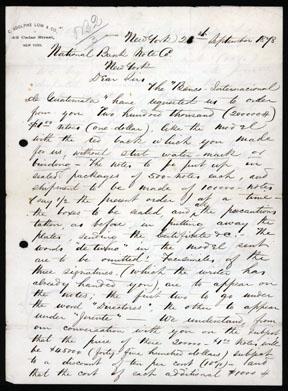 C. ADOLPHE LOW & CO.
42 Cedar Street,
NEW YORK.
New York 26th September 1878
National Bank Note Co.
New York
Dear Sirs
The "Banco Internacional
de Guatemala" have requested us to order
from you Two hundred thousand (200000)
$1 notes (one dollar), like the model
with the red back which you made
for us, without water mark or
binding. The notes to be put up in
sealed packages of 500 notes each, and
shipment to be made of 100000 notes
say 1/2 the present order at a time
the boxes to be sealed and the precautions
taken as before in putting away the
Plates, sending the Certificate &c. The
words "de nuevo" in the model sent
are to be omitted! Facsimiles of the
three signatures, (which the writer has
already handed you), are to appear on
the notes; the first two to go under
the word "Directores" the other to appear
under "Gerente".
We understand, from
our conversation with you on the subject
that the price of these 200000 $1 notes will
be $4500 (forty five hundred dollars) subject
to a discount of ten per cent (10%) and
that the cost of each additional 1000